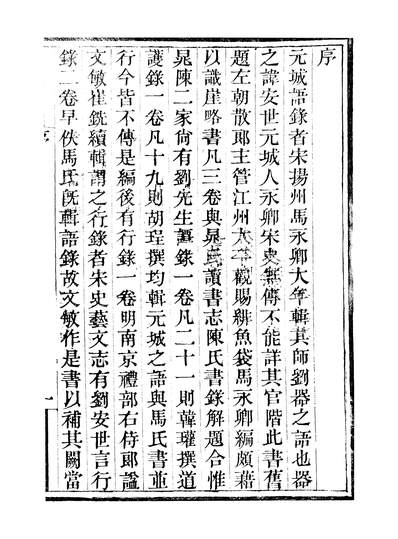 序
元城語錄者宋揚州馬永卿大年輯其師劉器之語也器
之諱安世元城人永卿宋史無傳不能詳其官階此書舊
題左朝散郎主管江州太平觀賜緋魚袋馬永卿編頗藉
以識崖略書凡三卷與晁氏讀書志陳氏書錄解題合惟
晁陳二家尙有劉先生譚錄一卷凡二十一則韓瓘撰道
護錄一卷凡十九則胡珵撰均輯元城之語與馬氏書並
行今皆不傳是編後有行錄一卷明南京禮部右侍郎諡
文敏崔銑續輯謂之行錄者宋史藝文志有劉安世言行
錄二卷早佚馬氏旣輯語錄故文敏作是書以補其闕當
序
一